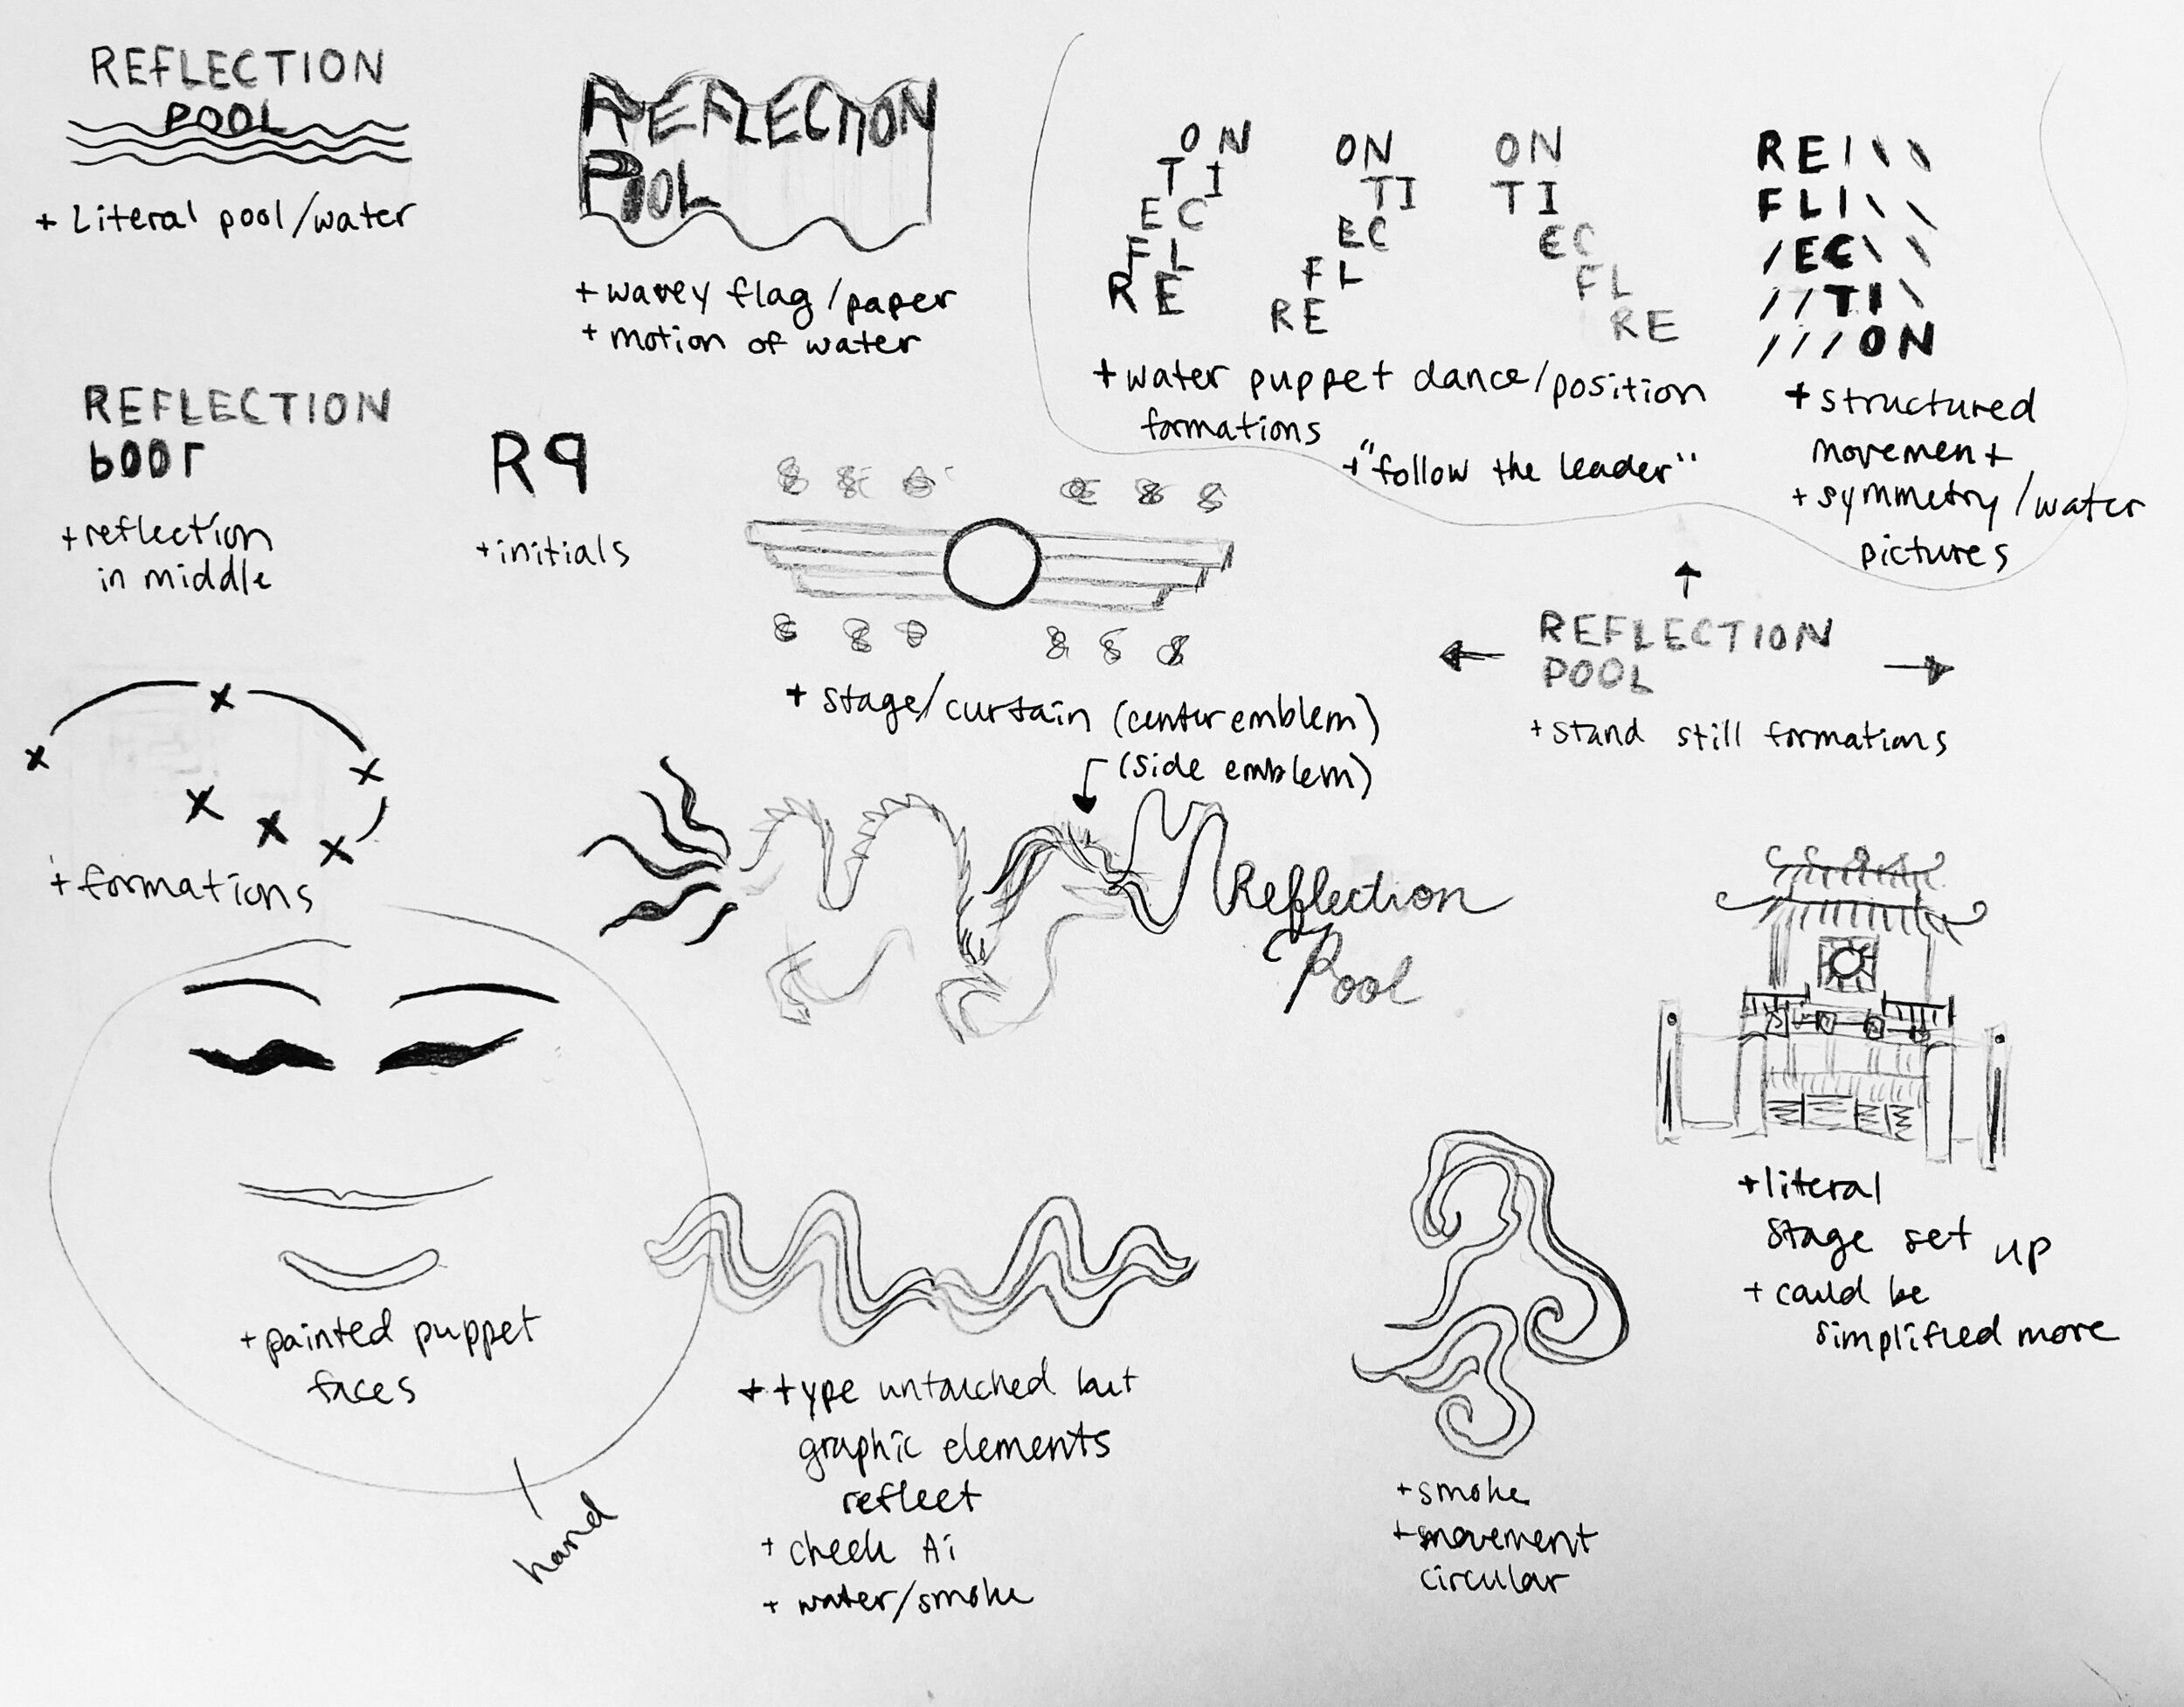 REFLECTION
POOL
+ Literal pool/water
REFLECTION
POOL
+ wavey flag/paper
+ motion of water
ON
TI
EC
FL
RE
ON
TI
EC
FL
RE
ON
TI
EC
FL
RE
+ water puppet dance/position
formations
+ "follow the leader"
RE|\\
FL|\\
/EC\\
//TI\
///ON
+ structured
movement
+ symmetry/water
pictures
REFLECTION
POOL
+ reflection
in middle
RP
+ initials
+ stage/curtain (center emblem)
(side emblem)
REFLECTION
POOL
+ stand still formations
x
x
x
x
x
x
+ formations
Reflection
Pool
+ painted puppet
faces
hand
+ type untouched but
graphic elements
reflect
+ check Ai
+ water/smoke
+ smoke
+ movement
circular
+ literal
stage set up
+ could be
simplified more